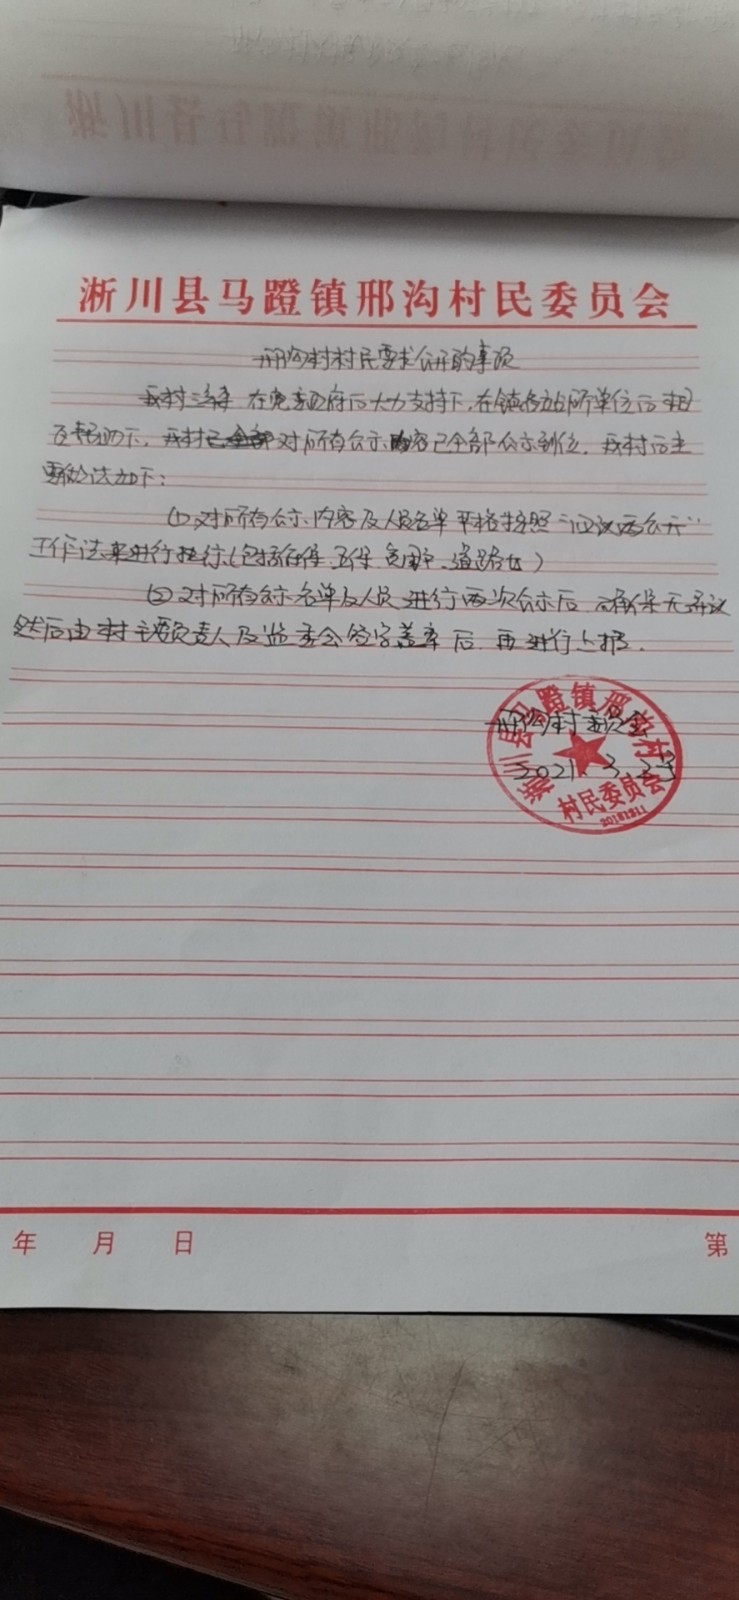 淅川县马蹬镇邢沟村民委员会
邢沟村村民要求公开的事项
我村三年来 在党委政府的大力支持下,在镇各站所单位的
及帮助下,我村已全部对所有公示内容已全部公示到位,我村的主
要做法如下:
(1)对所有公示内容及人员名单严格按照"四议两公开"
工作法来进行执行(包括低保、五保、贫困户、)
(2)对所有公示名单及人员进行两次公示后 确保无异议
然后由村主要负责人及监委会签字盖章后 再进行上报.
邢沟村委员会
2021. 3. 23号
淅川县马蹬镇邢沟村
村民委员会
年 月 日
第